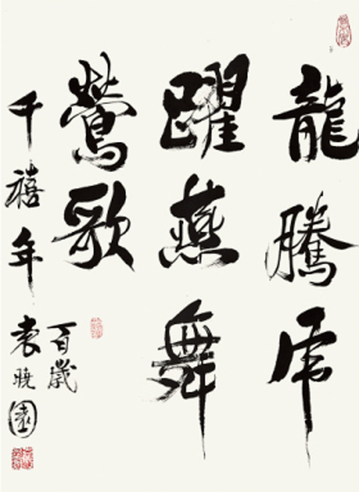 龍騰虎
躍燕舞
鶯歌
千禧年
百歲
袁曉園